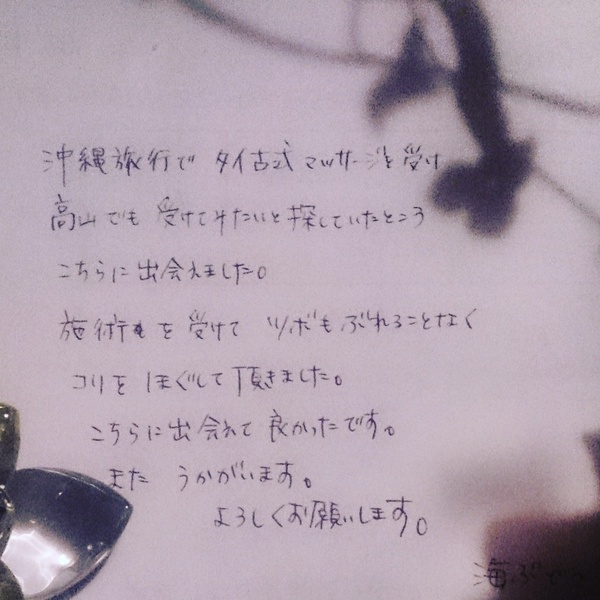 沖縄旅行で タイ古式 マッサージを 受け
高山でも 受けてみたいと探していたところ
こちらに 出会えました。
施術を 受けて ツボもぶれることなく
コリを ほぐして 頂きました。
こちらに出会えて 良かったです。
また うかがいます。
よろしくお願いします。
海ぶどう